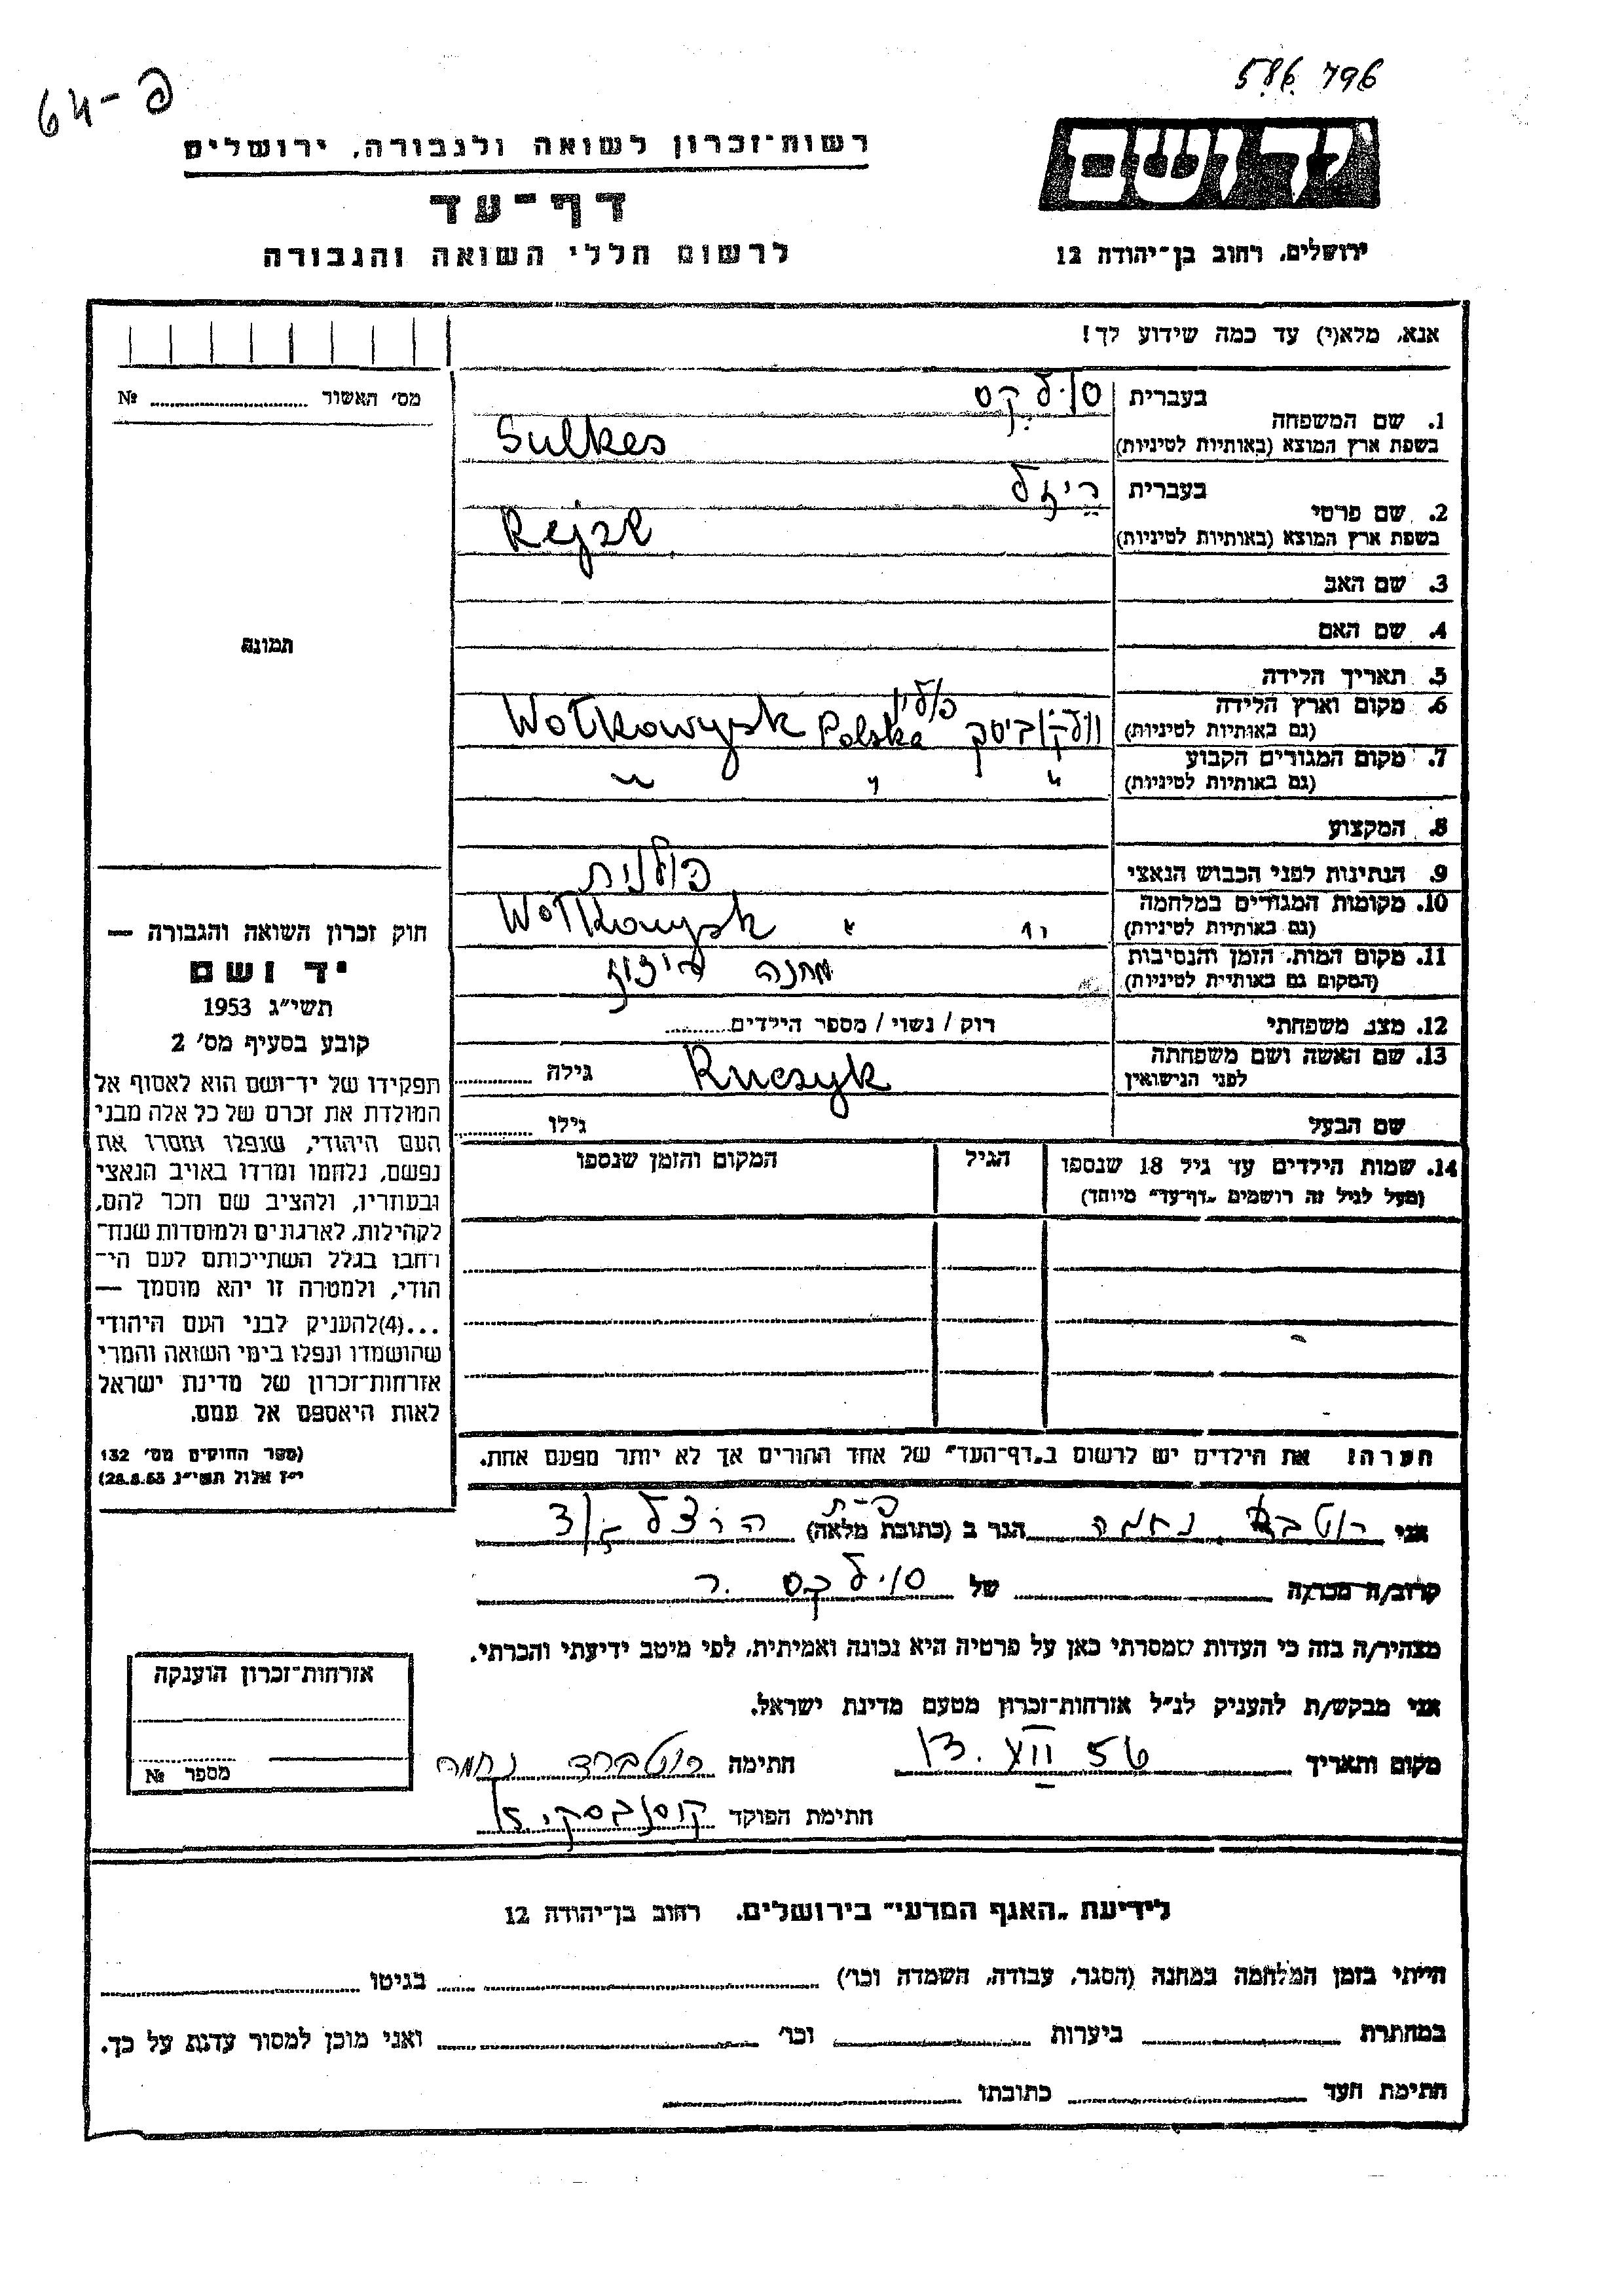 פ-64
586. 796
רשות־זכרון לשואה ולגבורה, ירושלים
דף־עד
לרשום חללי השואה והגבורה
יד ושם
ירושלים, רחוב בן־יהודה 12
אנא, מלא(י) עד כמה שידוע לך!
מס׳ האשור № 
1. שם המשפחה בעברית סולקס
בשפת ארץ המוצא (באותיות לטיניות) Sulkes
2. שם פרטי בעברית ריזל
בשפת ארץ המוצא (באותיות לטיניות) Rejzl
3. שם האב
4. שם האם
5. תאריך הלידה
6. מקום וארץ הלידה (גם באותיות לטיניות) וולקוביסק פולין Wołkowysk Polska
7. מקום המגורים הקבוע (גם באותיות לטיניות) " " "
8. המקצוע
9. הנתינות לפני הכבוש הנאצי פולנית
10. מקומות המגורים במלחמה (גם באותיות לטיניות) " " Wołkowysk
11. מקום המות, הזמן והנסיבות (המקום גם באותיות לטיניות) מחנה ריכוז
12. מצב משפחתי רוק / נשוי / מספר הילדים
13. שם האשה ושם משפחתה לפני הנישואין גילה
שם הבעל גילו
14. שמות הילדים עד גיל 18 שנספו
(מעל לגיל זה רושמים „דף־עד״ מיוחד)
הגיל
המקום והזמן שנספו
הערה! את הילדים יש לרשום ב„דף־העד״ של אחד ההורים אך לא יותר מפעם אחת.
תמונה
חוק זכרון השואה והגבורה —
יד ושם
תשי״ג 1953
קובע בסעיף מס׳ 2
תפקידו של יד־ושם הוא לאסוף אל
המולדת את זכרם של כל אלה מבני
העם היהודי, שנפלו ומסרו את
נפשם, נלחמו ומרדו באויב הנאצי
ובעוזריו, ולהציב שם וזכר להם,
לקהילות, לארגונים ולמוסדות שנח־
רחבו בגלל השתייכותם לעם הי־
הודי, ולמטרה זו יהא מוסמך —
...(4)להעניק לבני העם היהודי
שהושמדו ונפלו בימי השואה והמרי
אזרחות־זכרון של מדינת ישראל
לאות היאספם אל עמם.
(ספר החוקים מס׳ 132
י״ז אלול תשי״ג 28.8.53)
אני נחמה הגר ב (כתובת מלאה)
קרוב/ה מכר/ה של סולקס ר.
מצהיר/ה בזה כי העדות שמסרתי כאן על פרטיה היא נכונה ואמיתית, לפי מיטב ידיעתי והכרתי.
אני מבקש/ת להעניק לנ״ל אזרחות־זכרון מטעם מדינת ישראל.
מקום ותאריך 13. VII 56 חתימה נחמה
חתימת הפוקד
אזרחות־זכרון הוענקה
מספר №
לידיעת „האגף המדעי״ בירושלים, רחוב בן־יהודה 12
הייתי בזמן המלחמה במחנה (הסגר, עבודה, השמדה וכו׳) בגיטו
במחתרת ביערות וכו׳ ואני מוכן למסור עדות על כך.
חתימת העד כתובתו